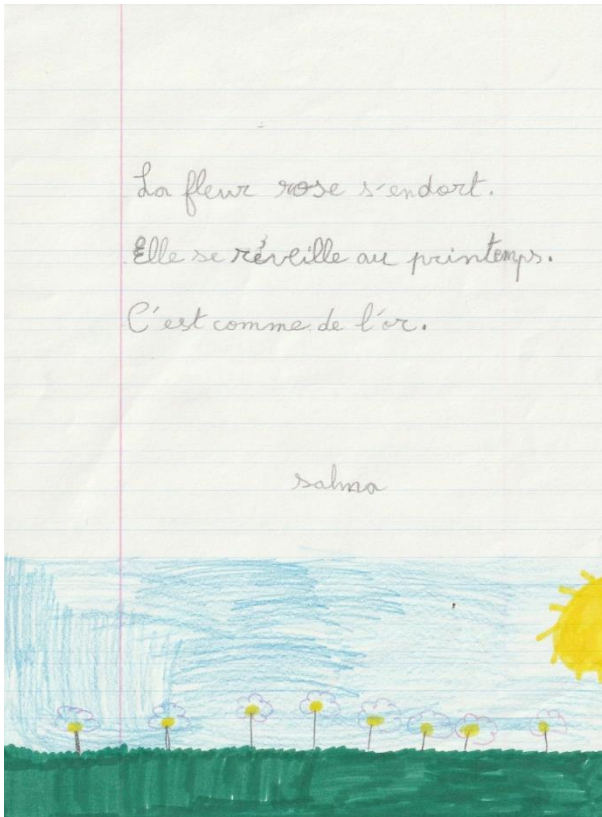 La fleur rose s'endort.
Elle se réveille au printemps.
C'est comme de l'or.
salma